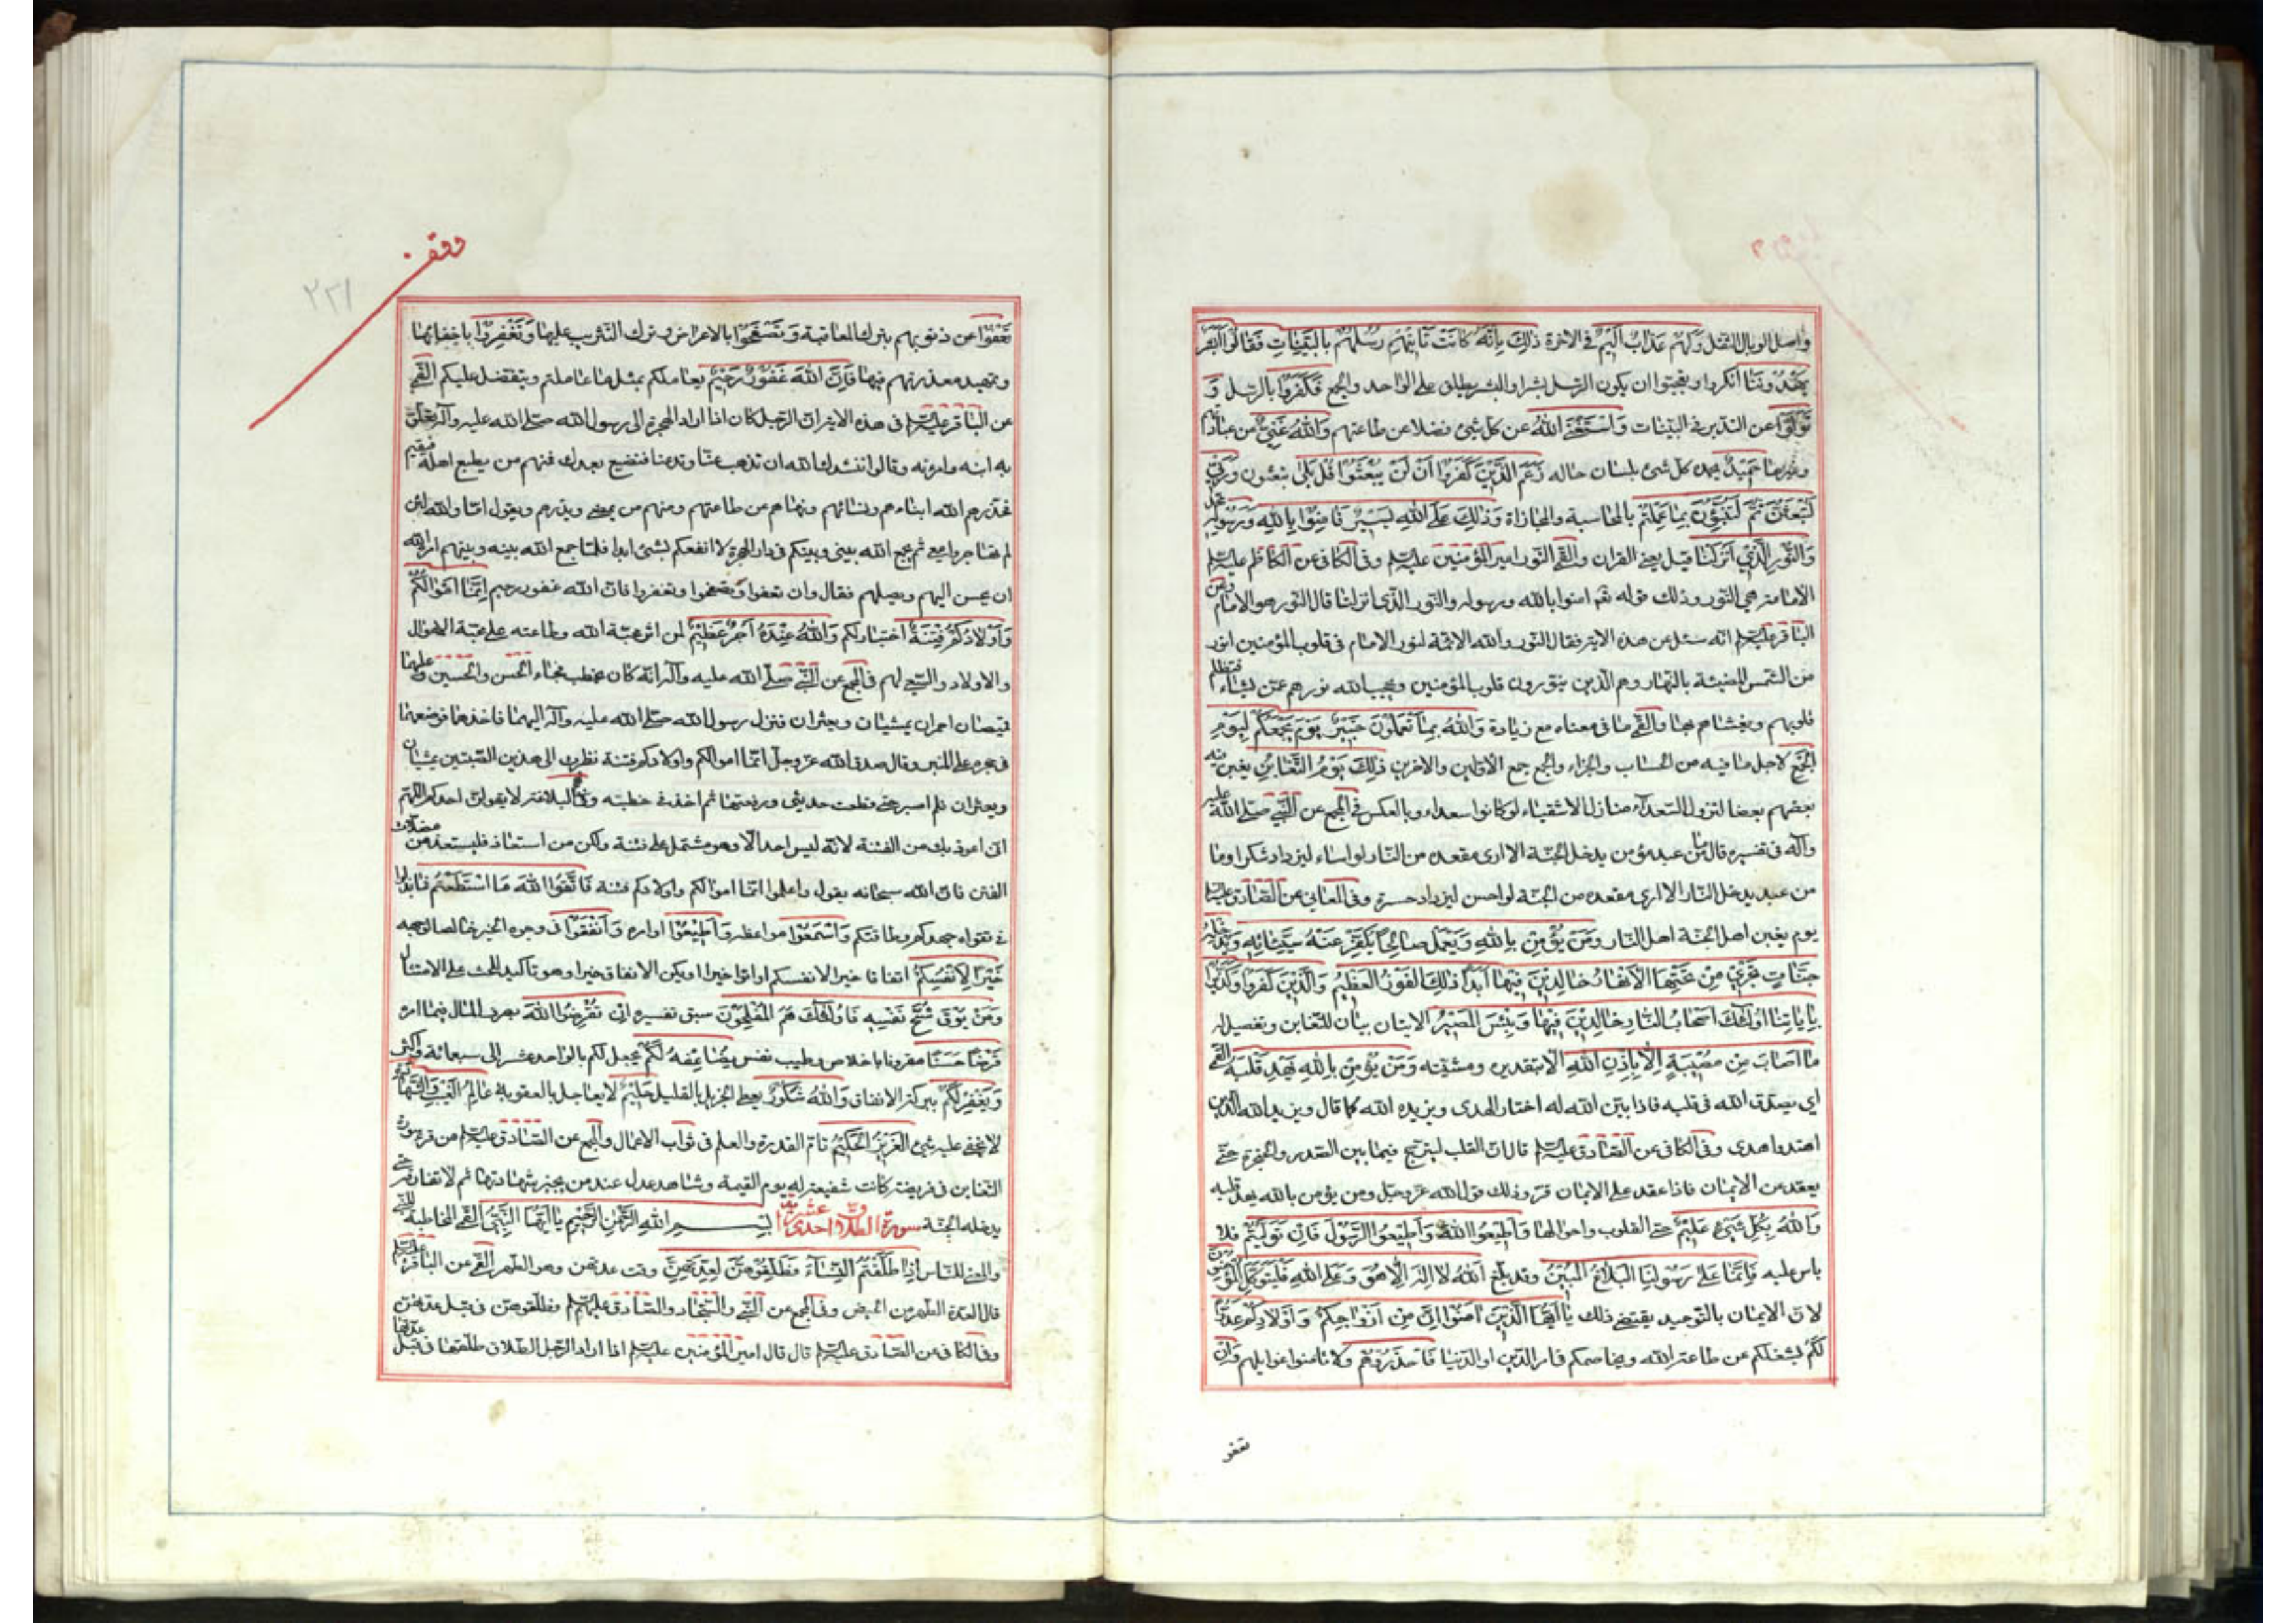 واصل الوبال الثقل وَلَهُمْ عَذَابٌ اَلِيْمٌ في الاخرة ذٰلِكَ بِاَنَّهُ كَانَتْ تَاْتِيْهِمْ رُسُلُهُمْ بِالْبَيِّنَاتِ فَقَالُوْا اَبَشَرٌ
يَهْدُوْنَنَا انكروا وتعجبوا ان يكون الرسل بشرا والبشر يطلق على الواحد والجمع فَكَفَرُوْا بالرسل وَ
تَوَلَّوْا عن التدبر في البينات وَاسْتَغْنَى اللهُ عن كل شئ فضلا عن طاعتهم وَاللهُ غَنِيٌّ عن عبادتهم
وغيرها حَمِيْدٌ يحمده كل شئ بلسان حاله زَعَمَ الَّذِيْنَ كَفَرُوْا اَنْ لَنْ يُبْعَثُوْا قُلْ بَلٰى تبعثون وَرَبِّيْ
لَتُبْعَثُنَّ ثُمَّ لَتُنَبَّؤُنَّ بِمَا عَمِلْتُمْ بالمحاسبة والمجازاة وَذٰلِكَ عَلَى اللهِ يَسِيْرٌ فَاٰمِنُوْا بِاللهِ وَرَسُوْلِهِ محمد
وَالنُّوْرِ الَّذِيْ اَنْزَلْنَا قيل يعني القران والقمي النور امير المؤمنين عليه السلم وفي الكافي عن الكاظم عليه السلم
الامامة هي النور وذلك قوله تعم امنوا بالله ورسوله والنور الذي انزلنا قال النور هو الامام وعن
الباقر عليه السلم انه سئل عن هذه الاية فقال النور والله الائمة لنور الامام في قلوب المؤمنين انور
من الشمس المضيئة بالنهار وهم الذين ينورون قلوب المؤمنين ويحجب الله نورهم عمن يشاء فتظلم
قلوبهم ويغشاهم بها والقمي ما في معناه مع زيادة وَاللهُ بِمَا تَعْمَلُوْنَ خَبِيْرٌ يَوْمَ يَجْمَعُكُمْ لِيَوْمِ
الْجَمْعِ لاجل ما فيه من الحساب والجزاء والجمع جمع الاولين والاخرين ذٰلِكَ يَوْمُ التَّغَابُنِ يغبن فيه
بعضهم بعضا لنزول السعداء منازل الاشقياء لو كانوا سعداء وبالعكس في المجمع عن النبي صلى الله عليه
وآله في تفسيره قال ما من عبد مؤمن يدخل الجنة الا ارى مقعده من النار لو اساء ليزداد شكرا وما
من عبد يدخل النار الا ارى مقعده من الجنة لو احسن ليزداد حسرة وفي المعاني عن الصادق عليه السلم
يوم يغبن اهل الجنة اهل النار وَمَنْ يُؤْمِنْ بِاللهِ وَيَعْمَلْ صَالِحًا يُكَفِّرْ عَنْهُ سَيِّئَاتِهِ وَيُدْخِلْهُ
جَنَّاتٍ تَجْرِيْ مِنْ تَحْتِهَا الْاَنْهَارُ خَالِدِيْنَ فِيْهَا اَبَدًا ذٰلِكَ الْفَوْزُ الْعَظِيْمُ وَالَّذِيْنَ كَفَرُوْا وَكَذَّبُوْا
بِاٰيَاتِنَا اُولٰئِكَ اَصْحَابُ النَّارِ خَالِدِيْنَ فِيْهَا وَبِئْسَ الْمَصِيْرُ الايتان بيان للتغابن وتفصيل له
مَا اَصَابَ مِنْ مُصِيْبَةٍ اِلَّا بِاِذْنِ اللهِ الا بتقديره ومشيته وَمَنْ يُؤْمِنْ بِاللهِ يَهْدِ قَلْبَهُ القمي
اي يصدق الله في قلبه فاذا بين الله له اختار الهدى ويزيده الله كما قال ويزيد الله الذين
اهتدوا هدى وفي الكافي عن الصادق عليه السلم قال ان القلب ليترجج فيما بين الصدر والحنجرة حتى
يعقد عن الايمان فاذا عقد على الايمان قر وذلك قول الله عز وجل ومن يؤمن بالله يهد قلبه
وَاللهُ بِكُلِّ شَيْءٍ عَلِيْمٌ حتى القلوب واحوالها وَاَطِيْعُوا اللهَ وَاَطِيْعُوا الرَّسُوْلَ فَاِنْ تَوَلَّيْتُمْ فلا
باس عليه فَاِنَّمَا عَلٰى رَسُوْلِنَا الْبَلَاغُ الْمُبِيْنُ وقد بلغ اَللهُ لَا اِلٰهَ اِلَّا هُوَ وَعَلَى اللهِ فَلْيَتَوَكَّلِ الْمُؤْمِنُوْنَ
لان الايمان بالتوحيد يقتضي ذلك يَا اَيُّهَا الَّذِيْنَ اٰمَنُوْا اِنَّ مِنْ اَزْوَاجِكُمْ وَاَوْلَادِكُمْ عَدُوًّا
لَكُمْ يشغلكم عن طاعة الله ويخاصمكم في امر الدين او الدنيا فَاحْذَرُوْهُمْ ولا تامنوا غوايلهم وَاِنْ
تعفو
٢٢١
تَعْفُوْا عن ذنوبهم بترك المعاقبة وَتَصْفَحُوْا بالاعراض وترك التثريب عليها وَتَغْفِرُوْا باخفائها
وتمهيد معذرتهم فيها فَاِنَّ اللهَ غَفُوْرٌ رَحِيْمٌ يعاملكم بمثل ما عاملتم ويتفضل عليكم القمي
عن الباقر عليه السلم في هذه الاية ان الرجل كان اذا اراد الهجرة الى رسول الله صلى الله عليه وآله تعلق
به ابنه وامرءته وقالوا ننشدك الله ان تذهب عنا وتدعنا فنضيع بعدك فمنهم من يطيع اهله فيقيم
فحذرهم الله ابناءهم ونسائهم ونهاهم عن طاعتهم ومنهم من يمضي ويذرهم ويقول اما والله لئن
لم تهاجروا معي ثم يجمع الله بيني وبينكم في دار الهجرة لا انفعكم بشئ ابدا فلما جمع الله بينه وبينهم امر الله
ان يحسن اليهم ويصلهم فقال وان تعفوا وتصفحوا وتغفروا فان الله غفور رحيم اِنَّمَا اَمْوَالُكُمْ
وَاَوْلَادُكُمْ فِتْنَةٌ اختبار لكم وَاللهُ عِنْدَهُ اَجْرٌ عَظِيْمٌ لمن اثر محبة الله وطاعته على محبة الاموال
والاولاد والسعي لهم في المجمع عن النبي صلى الله عليه وآله انه كان يخطب فجاء الحسن والحسين وعليهما
قميصان احمران يمشيان ويعثران فنزل رسول الله صلى الله عليه وآله اليهما فاخذهما فوضعهما
في حجره على المنبر وقال صدق الله عز وجل انما اموالكم واولادكم فتنة نظرت الى هذين الصبيين يمشيان
ويعثران فلم اصبر حتى قطعت حديثي ورفعتهما ثم اخذ في خطبته وفي نهج البلاغة لا يقولن احدكم اللهم
اني اعوذ بك من الفتنة لانه ليس احد الا وهو مشتمل على فتنة ولكن من استعاذ فليستعذ من مضلات
الفتن فان الله سبحانه يقول واعلموا انما اموالكم واولادكم فتنة فَاتَّقُوا اللهَ مَا اسْتَطَعْتُمْ فابذلوا
في تقواه جهدكم وطاقتكم وَاسْمَعُوْا مواعظه وَاَطِيْعُوْا اوامره وَاَنْفِقُوْا في وجوه الخير خالصا لوجهه
خَيْرًا لِاَنْفُسِكُمْ انفاقا خيرا لانفسكم او اتوا خيرا او يكن الانفاق خيرا وهو تاكيد للحث على الامتثال
وَمَنْ يُوْقَ شُحَّ نَفْسِهِ فَاُولٰئِكَ هُمُ الْمُفْلِحُوْنَ سبق تفسيره اِنْ تُقْرِضُوا اللهَ بصرف المال فيما امره
قَرْضًا حَسَنًا مقرونا باخلاص وطيب نفس يُضَاعِفْهُ لَكُمْ يجعل لكم بالواحد عشر الى سبعمائة واكثر
وَيَغْفِرْ لَكُمْ ببركة الانفاق وَاللهُ شَكُوْرٌ يعطي الجزيل بالقليل حَلِيْمٌ لا يعاجل بالعقوبة عَالِمُ الْغَيْبِ وَالشَّهَادَةِ
لا يخفى عليه شئ الْعَزِيْزُ الْحَكِيْمُ تام القدرة والعلم في ثواب الاعمال والمجمع عن الصادق عليه السلم من قرء سورة
التغابن في فريضة كانت شفيعة له يوم القيمة وشاهد عدل عند من يجيز شهادتها ثم لا تفارقه حتى
يدخله الجنة سورة الطلاق احدى عشر اية بِسْمِ اللهِ الرَّحْمٰنِ الرَّحِيْمِ يَا اَيُّهَا النَّبِيُّ القمي المخاطبة للنبي
والمعنى للناس اِذَا طَلَّقْتُمُ النِّسَاءَ فَطَلِّقُوْهُنَّ لِعِدَّتِهِنَّ وقت عدتهن وهو الطهر القمي عن الباقر عليه السلم
قال العدة الطهر من الحيض وفي المجمع عن النبي والسجاد والصادق عليهم السلم فطلقوهن في قبل عدتهن
وفي الكافي عن الصادق عليه السلم قال قال امير المؤمنين عليه السلم اذا اراد الرجل الطلاق طلقها في قبل عدتها